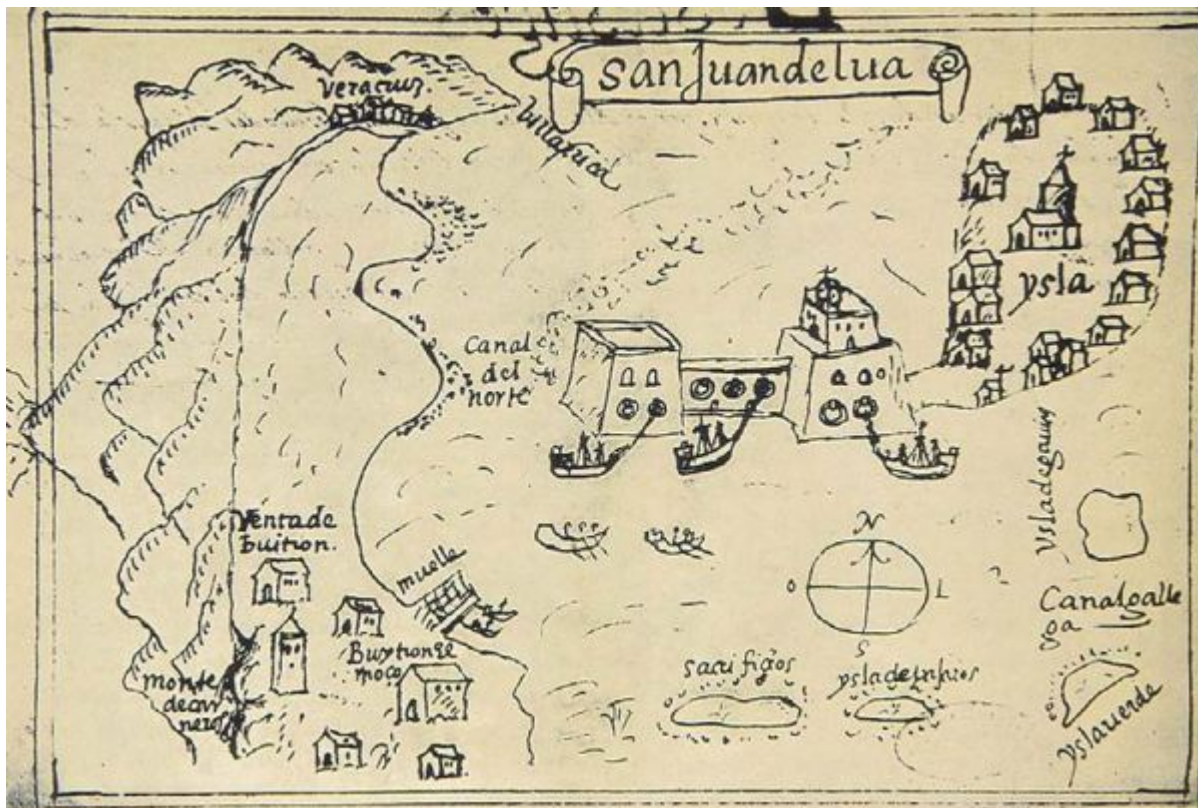 sanJuandelua
veracruz.
billarrica
Canal
del
norte
ysla
Ventade
buitron.
muelle
Buytronel
moço
monte
decar
nero
N
O
L
S
sacrifiçios
ysladegauin
Canalgalle
ga
yslauerde